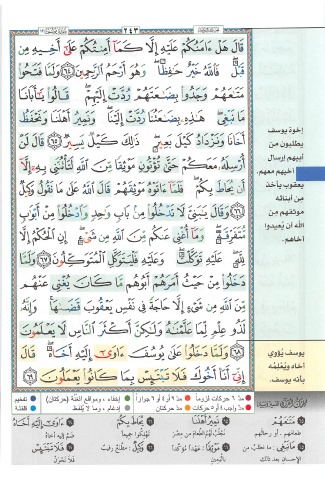 ٢٤٣
قَالَ هَلْ ءَامَنُكُمْ عَلَيْهِ إِلَّا كَمَآ أَمِنتُكُمْ عَلَىٰٓ أَخِيهِ مِن
قَبْلُ فَٱللَّهُ خَيْرٌ حَٰفِظًا وَهُوَ أَرْحَمُ ٱلرَّٰحِمِينَ ٦٤ وَلَمَّا فَتَحُوا۟
مَتَٰعَهُمْ وَجَدُوا۟ بِضَٰعَتَهُمْ رُدَّتْ إِلَيْهِمْ قَالُوا۟ يَٰٓأَبَانَا
مَا نَبْغِى هَٰذِهِۦ بِضَٰعَتُنَا رُدَّتْ إِلَيْنَا وَنَمِيرُ أَهْلَنَا وَنَحْفَظُ
أَخَانَا وَنَزْدَادُ كَيْلَ بَعِيرٍ ذَٰلِكَ كَيْلٌ يَسِيرٌ ٦٥ قَالَ لَنْ
أُرْسِلَهُۥ مَعَكُمْ حَتَّىٰ تُؤْتُونِ مَوْثِقًا مِّنَ ٱللَّهِ لَتَأْتُنَّنِى بِهِۦٓ إِلَّآ
أَن يُحَاطَ بِكُمْ فَلَمَّآ ءَاتَوْهُ مَوْثِقَهُمْ قَالَ ٱللَّهُ عَلَىٰ مَا نَقُولُ وَكِيلٌ
٦٦ وَقَالَ يَٰبَنِىَّ لَا تَدْخُلُوا۟ مِنۢ بَابٍ وَٰحِدٍ وَٱدْخُلُوا۟ مِنْ أَبْوَٰبٍ
مُّتَفَرِّقَةٍ وَمَآ أُغْنِى عَنكُم مِّنَ ٱللَّهِ مِن شَىْءٍ إِنِ ٱلْحُكْمُ إِلَّا
لِلَّهِ عَلَيْهِ تَوَكَّلْتُ وَعَلَيْهِ فَلْيَتَوَكَّلِ ٱلْمُتَوَكِّلُونَ ٦٧ وَلَمَّا
دَخَلُوا۟ مِنْ حَيْثُ أَمَرَهُمْ أَبُوهُم مَّا كَانَ يُغْنِى عَنْهُم
مِّنَ ٱللَّهِ مِن شَىْءٍ إِلَّا حَاجَةً فِى نَفْسِ يَعْقُوبَ قَضَىٰهَا وَإِنَّهُۥ
لَذُو عِلْمٍ لِّمَا عَلَّمْنَٰهُ وَلَٰكِنَّ أَكْثَرَ ٱلنَّاسِ لَا يَعْلَمُونَ
٦٨ وَلَمَّا دَخَلُوا۟ عَلَىٰ يُوسُفَ ءَاوَىٰٓ إِلَيْهِ أَخَاهُ قَالَ
إِنِّىٓ أَنَا۠ أَخُوكَ فَلَا تَبْتَئِسْ بِمَا كَانُوا۟ يَعْمَلُونَ ٦٩
إخوة يوسف
يطلبون من
أبيهم إرسال
أخيهم معهم.
يعقوب يأخذ
من أبنائه
موثقهم من
الله أن يُعيدوا
أخاهم.
يوسف يُؤوي
أخاه ويُعْلِمُه
بأنه يوسف.
مدّ ٦ حركات لزوماً
مدّ ٢ أو ٤ أو ٦ جوازاً
مدّ واجب ٤ أو ٥ حركات
مدّ حركتان
إخفاء، ومواقع الغنّة (حركتان)
إدغام، وما لا يُلفظ
تفخيم
قلقلة